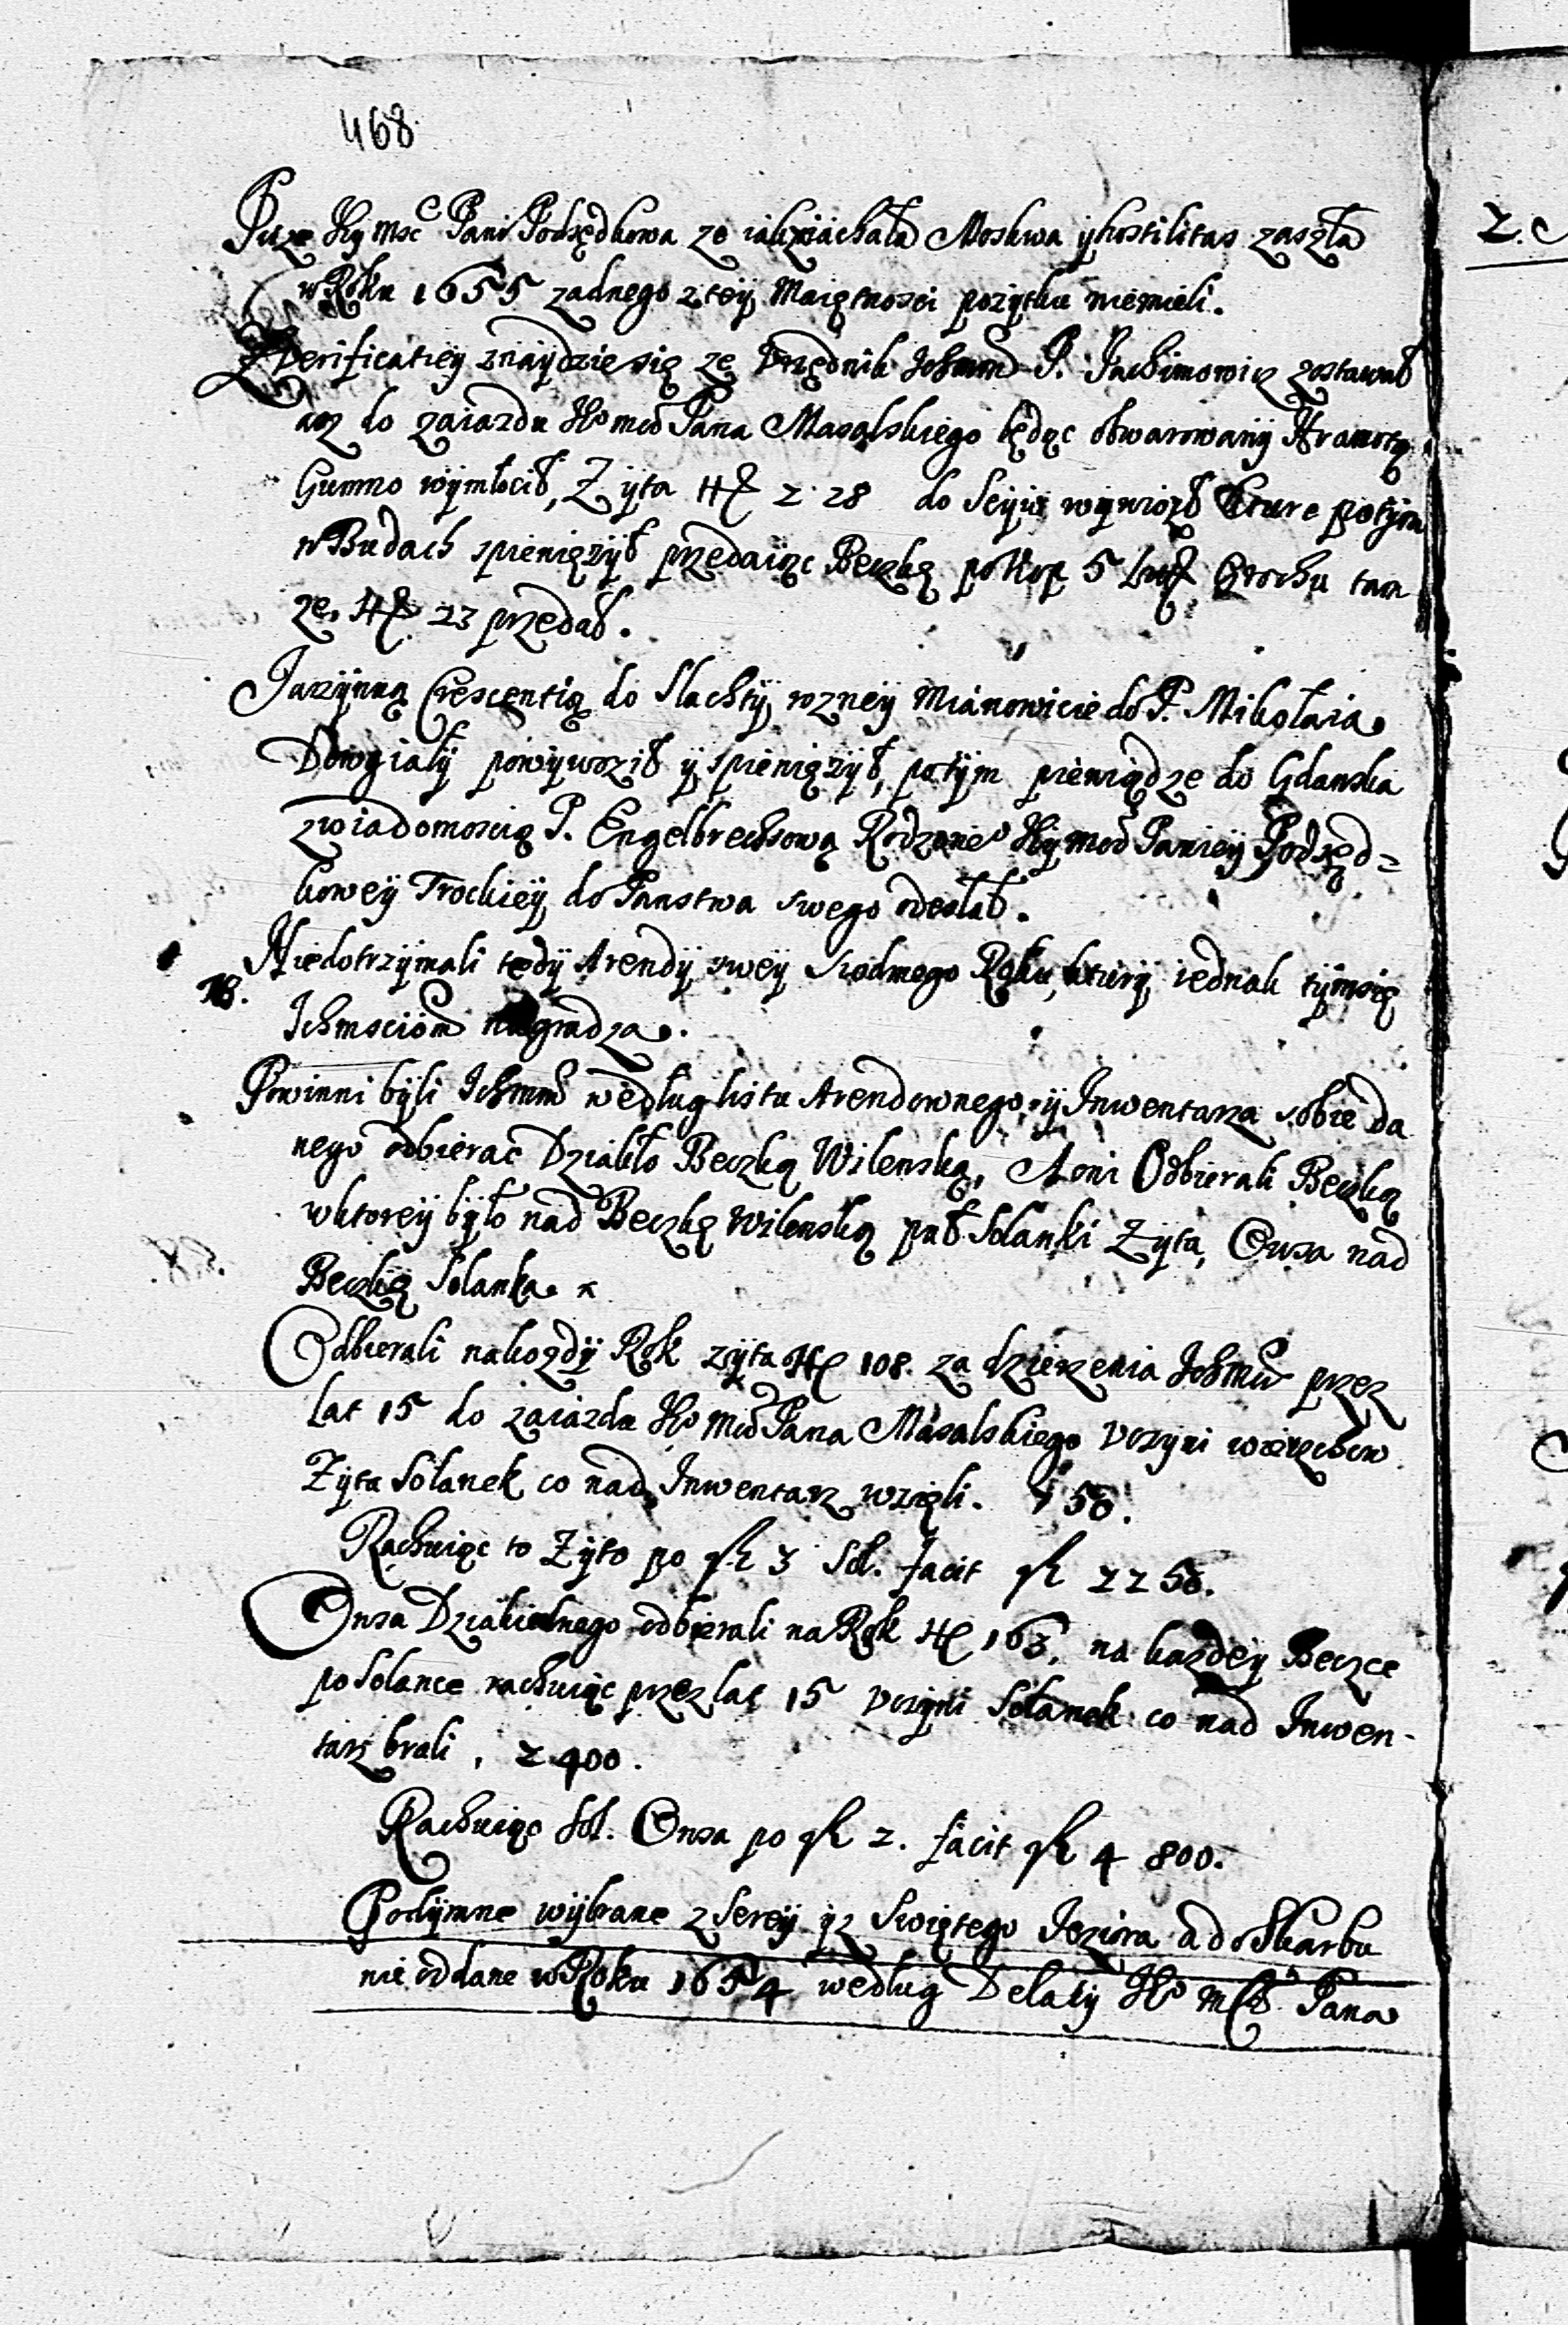 468.
Pisze Jey Msć Pani Podsędkowa ze iakziáchała Moskwa y hostilitas zaszła
w Roku 1655 zadnego z teÿ Maiętnosći pożÿtku niemieli.
Z Verificatieÿ znaÿdzie się ze Vrzędnik Jchmm P. Jachimowicz zostawał
asz do zaiazdu Jeo mci Pana Masalskiego będąc obwarowanÿ Hramotą
Gumno wÿmłocił, Zÿta H 228 do wÿwiozł kture potÿm
w Budach spieniężÿł przedaiąc Beczkę po kop 5 Grochu tam
ze. H 23 przedał.
Jarzÿnną Crescentią do Slachtÿ rozneÿ Mianowicie do P. Mikołaia
Dowgiałÿ powÿwoził ÿ spieniężÿł, potÿm pieniądze do Gdanska
z wiadomoscią P. Engelbrechtową Rodzoneo Jeÿ mci Panieÿ Podsęd=
koweÿ Trockieÿ do Panstwa swego odesłał.
Niedotrzÿmali tedÿ Arendÿ sweÿ siodmego Roku, kturÿ iednak tÿmsię
NB.
Ichmsciom nagradza.
Powinni bÿli Ichmm według listu Arendownego ÿ Inwentarza sobie da
nego odbierac Dziakło Beczką Wilenską, A oni Odbierali Beczką
w ktoreÿ bÿło nad Beczkę Wilenską puł Solanki Zÿta, Owsa nad
Beczkę Solanka.
Odbierali na kozdÿ Rok zÿta H 108. za dzierzenia Jchmm przez
lat 15 do zaiazdu Jeo mci Pana Masalskiego Vczÿni wierzchow
Zÿta Solanek co nad Inwentarz wzięli. 750.
Rachuiąc to Zÿto po fl 3 Sol. facit fl 2250.
Owsa Dziakielnego odbierali na Rok H 163, na kazdeÿ Beczce
po Solance rachuiąc przez lat 15 Vczÿni Solanek co nad Inwen-
tarz brali, 2400.
Rachuiąc Sol. Owsa po fl 2. facit fl 4800.
Podÿmne wÿbrane z Sereÿ ÿ z Swiętego Jeziora a do Skarbu
nie oddane w Roku 1654 według Delatÿ Jeo mci Pana
2.